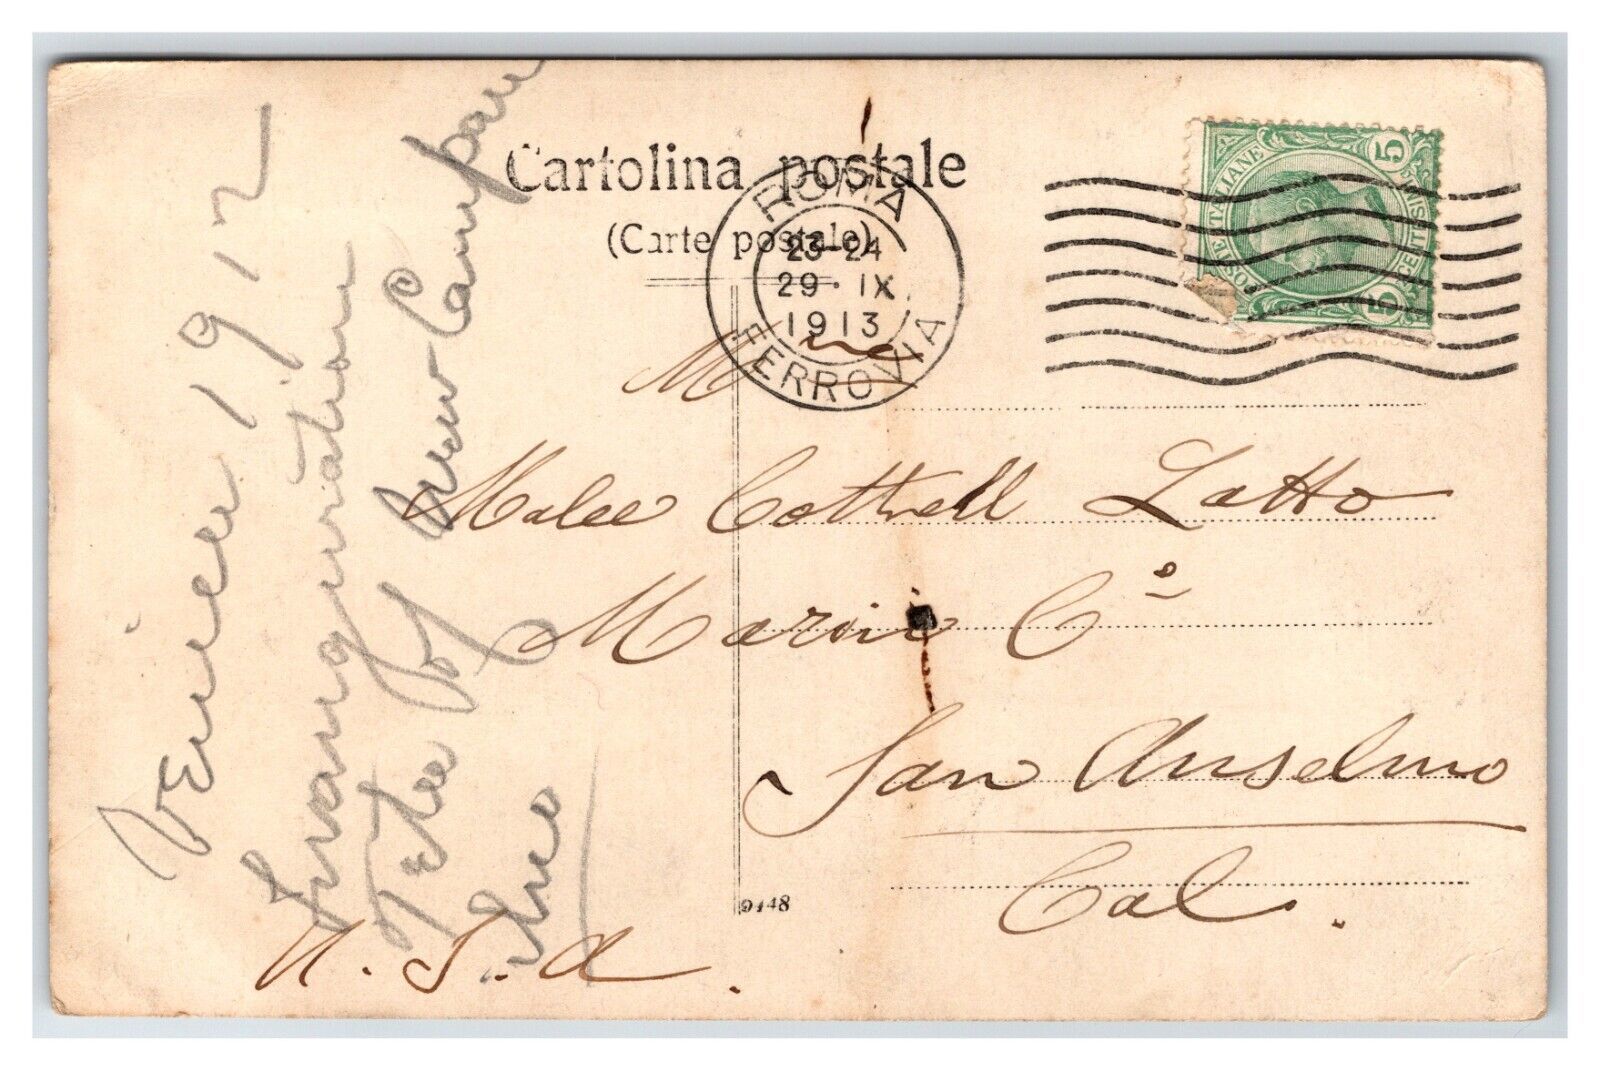 Cartolina postale
(Carte postale)
ROMA
23-24
29 · IX
1913
FERROVIA
POSTE ITALIANE
CENTESIMI
5
5
Venice 1912
Inauguration
Fete of new Campanile
M
Cottrell Latto
Marin Co
San Anselmo
Cal.
U. S. A.
9448